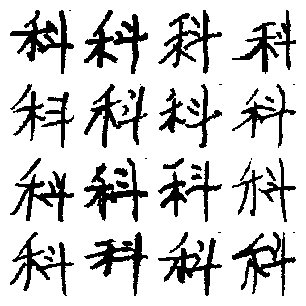 科科科科
科科科科
科科科科
科科科科